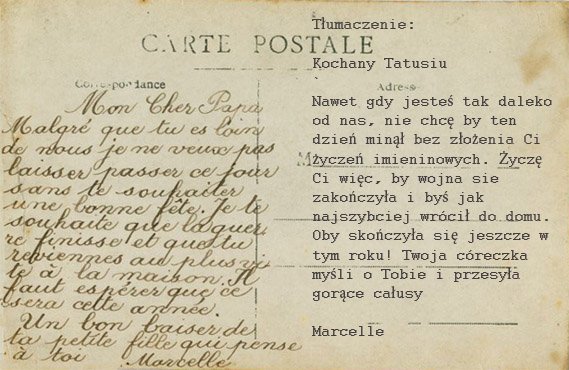 CARTE POSTALE
Correspondance
Mon Cher Papa
Malgré que tu es loin
de nous je ne veux pas
laisser passer ce jour
sans te souhaiter
une bonne fête. Je te
souhaite que la guer
re finisse et que tu
reviennes au plus vi
te à la maison. Il
faut espérer que ce
sera cette année.
Un bon baiser de
ta petite fille qui pense
à toi Marcelle
Adresse
Tłumaczenie:
Kochany Tatusiu
Nawet gdy jesteś tak daleko
od nas, nie chcę by ten
dzień minął bez złożenia Ci
życzeń imieninowych. Życzę
Ci więc, by wojna sie
zakończyła i byś jak
najszybciej wrócił do domu.
Oby skończyła się jeszcze w
tym roku! Twoja córeczka
myśli o Tobie i przesyła
gorące całusy
Marcelle